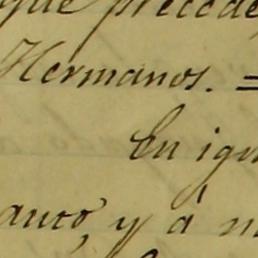 que precede
Hermanos. =
En igu
anco, y á m